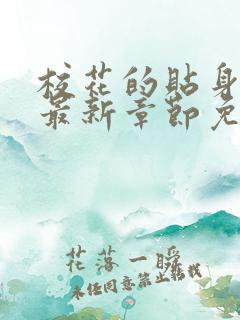 校花的贴身
最新章节免
花落一瞬
未经同意禁止转载